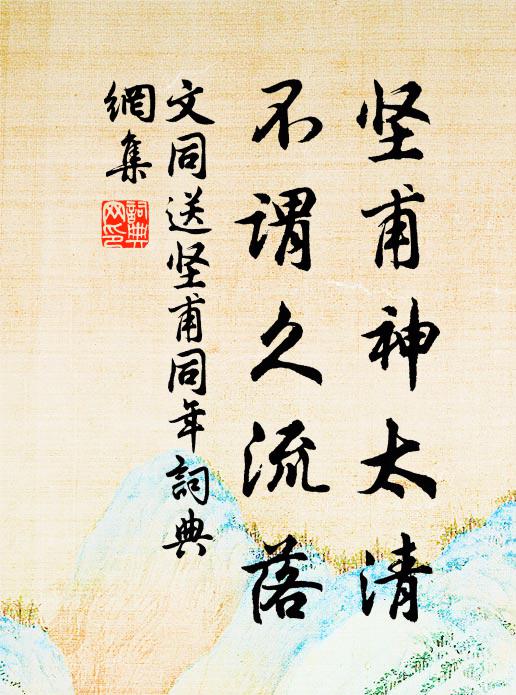 坚甫神太清
不谓久流落
文同送坚甫同年詞典
網集
詞典网印